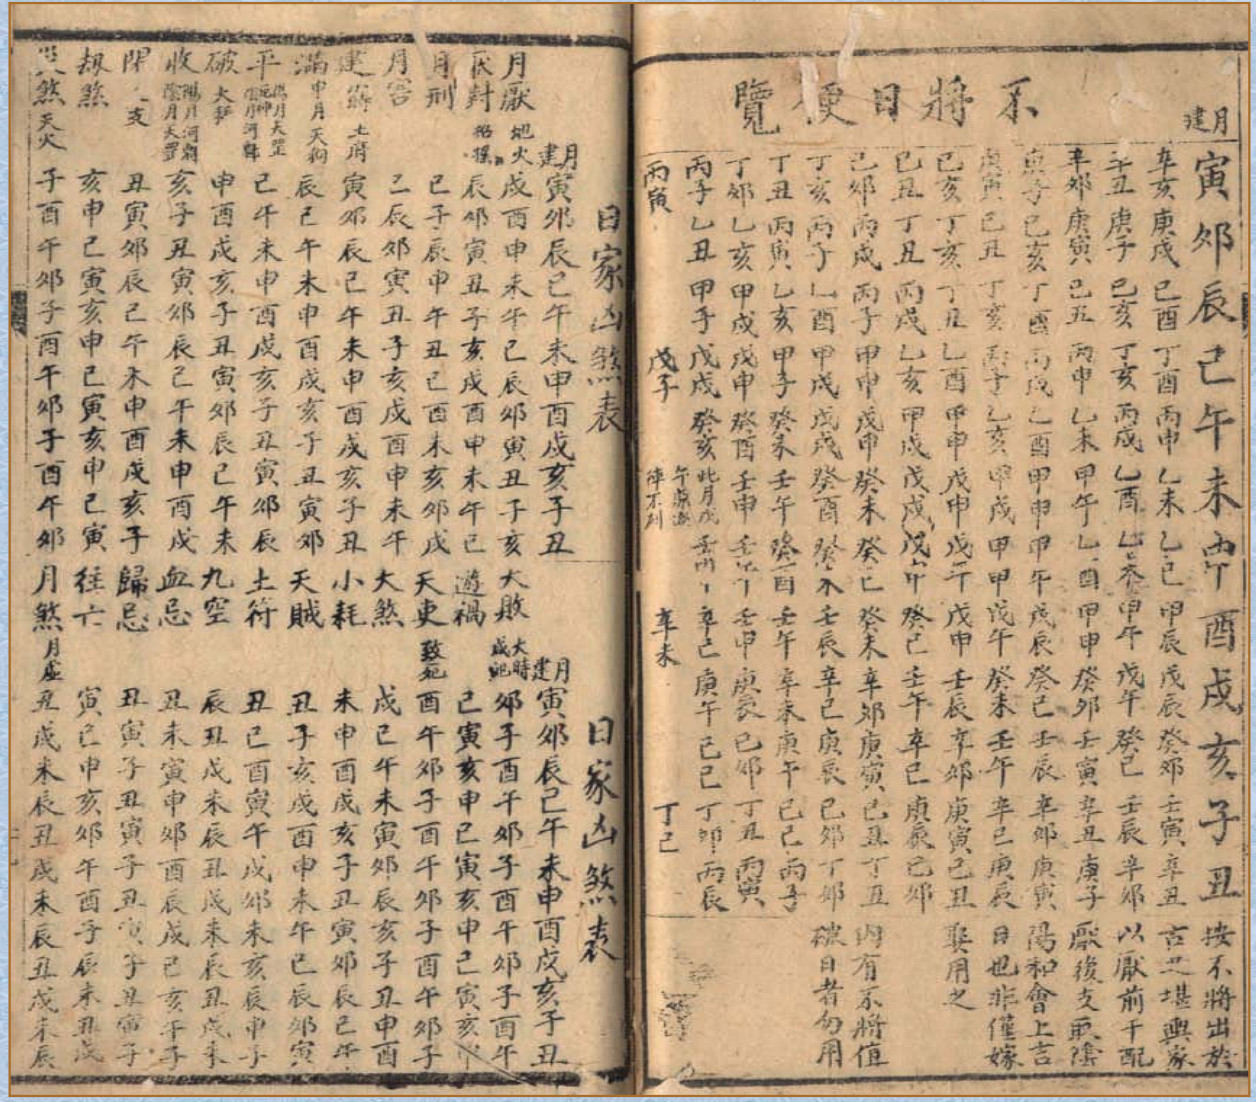 不將日便覽
月建
寅夘辰巳午未申酉戌亥子丑 按不將出於
辛亥庚戌己酉丁酉丙申乙未乙巳甲辰戊辰癸夘壬寅辛丑 古之堪輿家
辛丑庚子己亥丁亥丙戌乙酉乙未甲午戊午癸巳壬辰辛夘 以厭前干配
辛夘庚寅己丑丙申乙未甲午乙酉甲申癸夘壬寅辛丑庚子 厭後支取陰
庚子己亥丁酉丙戌乙酉甲申甲午戊辰癸巳壬辰辛夘庚寅 陽和會上吉
庚寅己丑丁亥丙子乙亥甲戌甲申戊午癸未壬午辛巳庚辰 日也非僅嫁
己亥丁亥丁丑乙酉甲申戊申戊午戊申壬辰辛夘庚寅己丑 娶用之
己丑丁丑丙戌乙亥甲戌戊戌戊午癸巳壬午辛巳庚辰己夘
己夘丙戌丙子甲申戊申癸未癸巳癸未辛夘庚寅己丑丁丑 內有不將值
丁亥丙子乙酉甲戌戊戌癸酉癸未壬辰辛巳庚辰己夘丁夘 破日者勿用
丁丑丙寅乙亥甲子癸未壬午癸酉壬午辛未庚午己巳丙子
丁夘乙亥甲戌戊申癸酉壬申壬午壬申庚辰己夘丁丑丙寅
丙子乙丑甲子戊戌癸亥 此月戊午 辛巳庚午己巳丁夘丙辰
丙寅 戊子 辛未 丁巳
日家凶煞表
月建 寅夘辰巳午未申酉戌亥子丑
月厭 地火 戌酉申未午巳辰夘寅丑子亥
厭對 招搖 辰夘寅丑子亥戌酉申未午巳
月刑 巳子辰申午丑巳酉未亥夘戌
月害 巳辰夘寅丑子亥戌酉申未午
建 土府 寅夘辰巳午未申酉戌亥子丑
滿 天狗 辰巳午未申酉戌亥子丑寅夘
平 陽月天罡 陰月河魁 巳午未申酉戌亥子丑寅夘辰
破 大耗 申酉戌亥子丑寅夘辰巳午未
收 陽月河魁 陰月天罡 亥子丑寅夘辰巳午未申酉戌
閉 丑寅夘辰巳午未申酉戌亥子
劫煞 亥申巳寅亥申巳寅亥申巳寅
災煞 天火 子酉午夘子酉午夘子酉午夘
日家凶煞表
月建 寅夘辰巳午未申酉戌亥子丑
大敗 大時 咸池 夘子酉午夘子酉午夘子酉午
遊禍 巳寅亥申巳寅亥申巳寅亥申
天吏 致死 酉午夘子酉午夘子酉午夘子
大煞 戌巳午未寅夘辰亥子丑申酉
小耗 未申酉戌亥子丑寅夘辰巳午
天賊 丑子亥戌酉申未午巳辰夘寅
土符 丑巳酉寅午戌夘未亥辰申子
九空 辰丑戌未辰丑戌未辰丑戌未
血忌 丑未寅申夘酉辰戌巳亥午子
歸忌 丑寅子丑寅子丑寅子丑寅子
往亡 寅巳申亥夘午酉子辰未丑戌
月煞 月虛 丑戌未辰丑戌未辰丑戌未辰